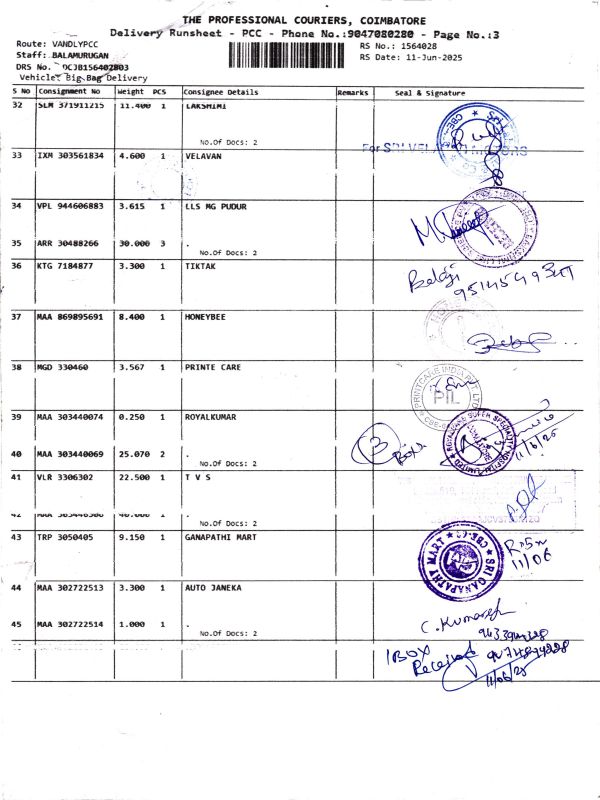 THE PROFESSIONAL COURIERS, COIMBATORE
Delivery Runsheet - PCC - Phone No.:9047080280 - Page No.:3
Route: VANDLYPCC
RS No.: 1564028
Staff: BALAMURUGAN
RS Date: 11-Jun-2025
DRS No. DCJB156402803
Vehicle: Big Bag Delivery
S No Consignment No Weight PCS Consignee Details Remarks Seal & Signature
32 SLM 371911215 11.400 1 LAKSHIMI
No.Of Docs: 2
For SRI VELAVAN MOTORS
33 IXM 303561834 4.600 1 VELAVAN
34 VPL 944606883 3.615 1 LLS MG PUDUR
35 ARR 30488266 30.000 3 .
No.Of Docs: 2
36 KTG 7184877 3.300 1 TIKTAK
Balaji
37 MAA 869895691 8.400 1 HONEYBEE
38 MGD 330460 3.567 1 PRINTE CARE
PRINTCARE INDIA PVT LTD
PIL
39 MAA 303440074 0.250 1 ROYALKUMAR
3 Box
11/6/25
40 MAA 303440069 25.070 2 .
No.Of Docs: 2
41 VLR 3306302 22.500 1 T V S
42 40.000 1 .
No.Of Docs: 2
43 TRP 3050405 9.150 1 GANAPATHI MART
SRI GANAPATHY MART CBE
11/06
44 MAA 302722513 3.300 1 AUTO JANEKA
C. Kumaresh
45 MAA 302722514 1.000 1 .
No.Of Docs: 2
1 BOX
Received
11/06/25